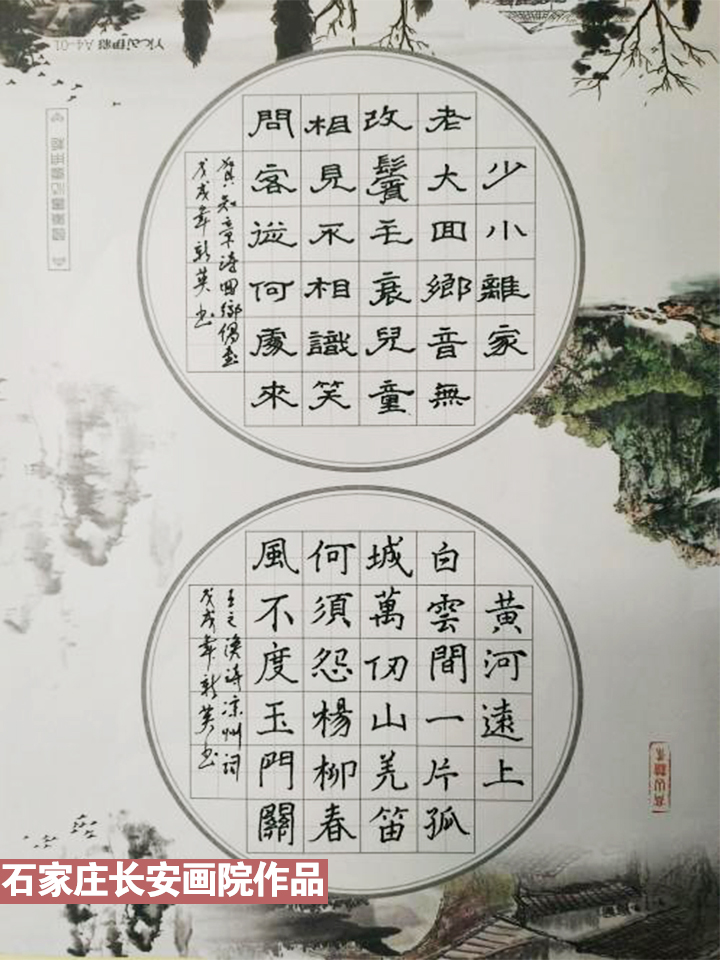 少小離家
老大回鄉音無
改鬢毛衰兒童
相見不相識笑
問客從何處來
賀知章詩回鄉偶書
戊戌年新英书
黃河遠上
白雲間一片孤
城萬仞山羌笛
何須怨楊柳春
風不度玉門關
王之渙詩凉州詞
戊戌年新英书
A4-01
石家庄长安画院作品